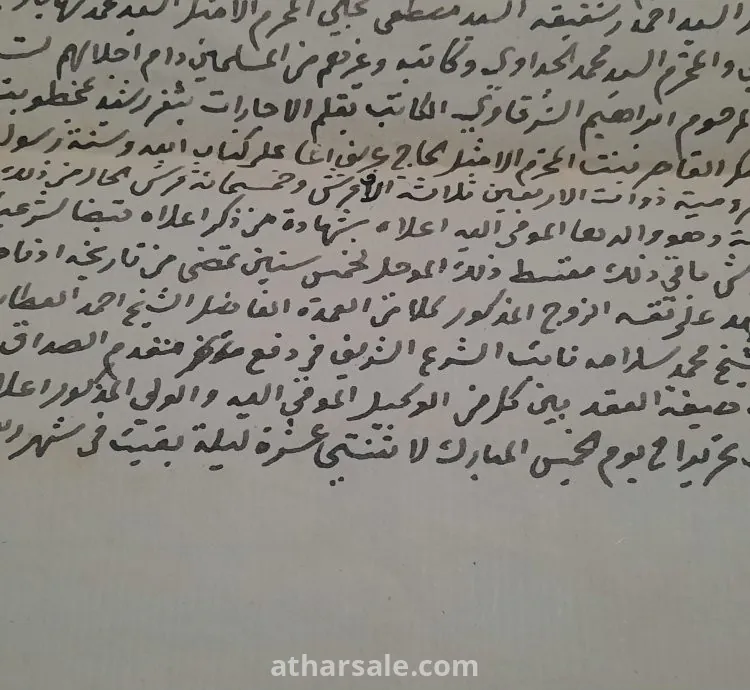 السيد احمد وشقيقه السيد مصطفى جلبي المحترم الامثل السيد محمد
والمحترم السيد محمد الجداوي وكاتبه وغيرهم من المسلمين دام اجلالهم
المرحوم ابراهيم الشرقاوي الكاتب بقلم الاجارات بثغر رشيد بمخطوبته
القاصر بنت المحترم الامثل الحاج اغا على كتاب الله وسنة رسول
ذو انت الاربعين ثلاثة الاف قرش وخمسمائة قرش الحال من ذلك
وهو والدها المومى اليه اعلاه بشهادة من ذكر اعلاه قبضا شرعيا
باقي ذلك مقسط ذلك الموجل لخمس سنين تمضى من تاريخه اذنا
على نفسه الزوج المذكور كلا من العمدة الفاضل الشيخ احمد العطار
محمد سلامه نائب الشرع الشريف في دفع متقدم الصداق
صيغة العقد بين كل من الوكيل المومى اليه والولى المذكور اعلاه
تحريرا في يوم الخميس المبارك لاثنتي عشرة ليلة بقيت في شهر
atharsale.com